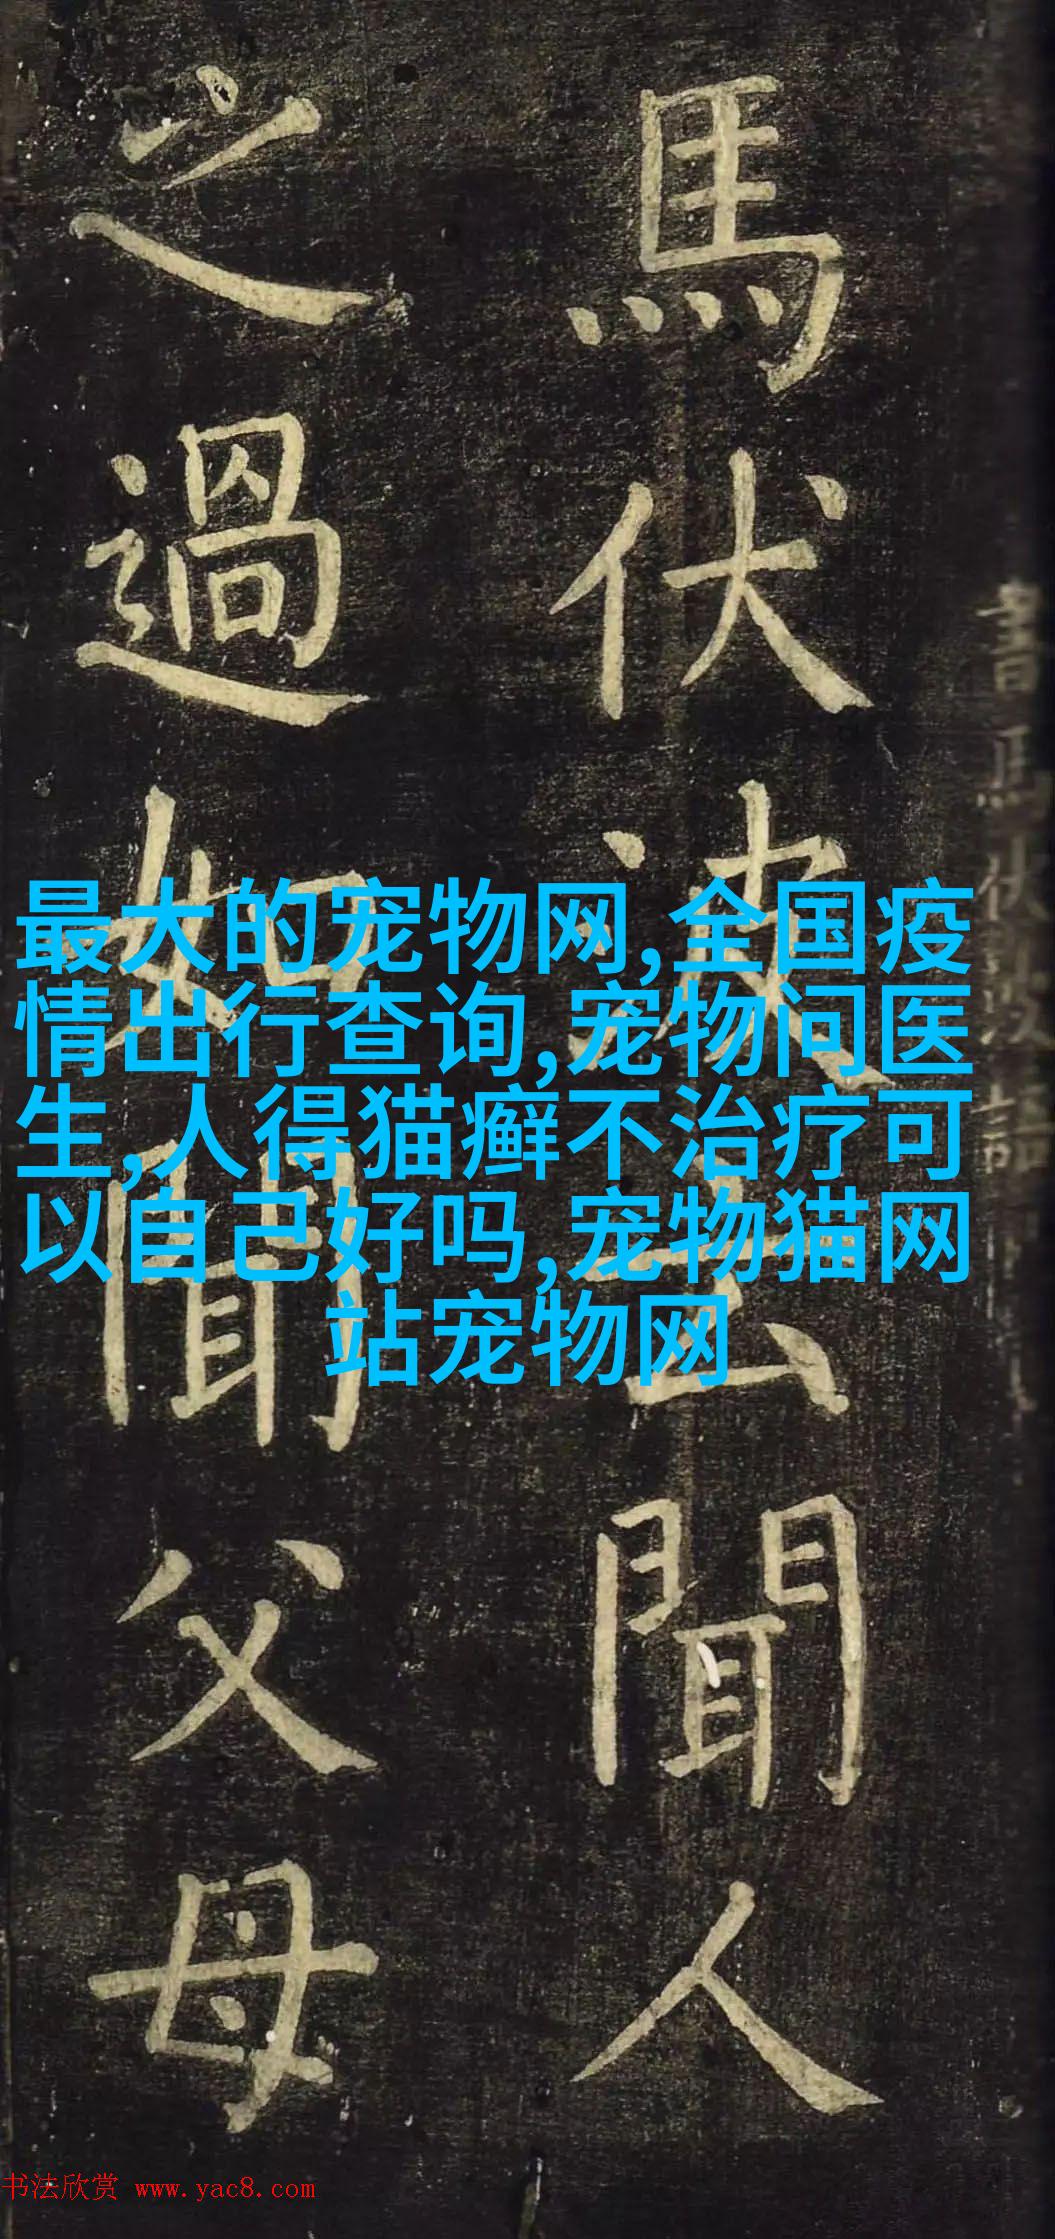 馬伏波云聞人
之過如聞父母
最大的宠物网,全国疫
情出行查询,宠物问医
生,人得猫癣不治疗可
以自己好吗,宠物猫网
站宠物网
书法欣赏 www.yac8.com